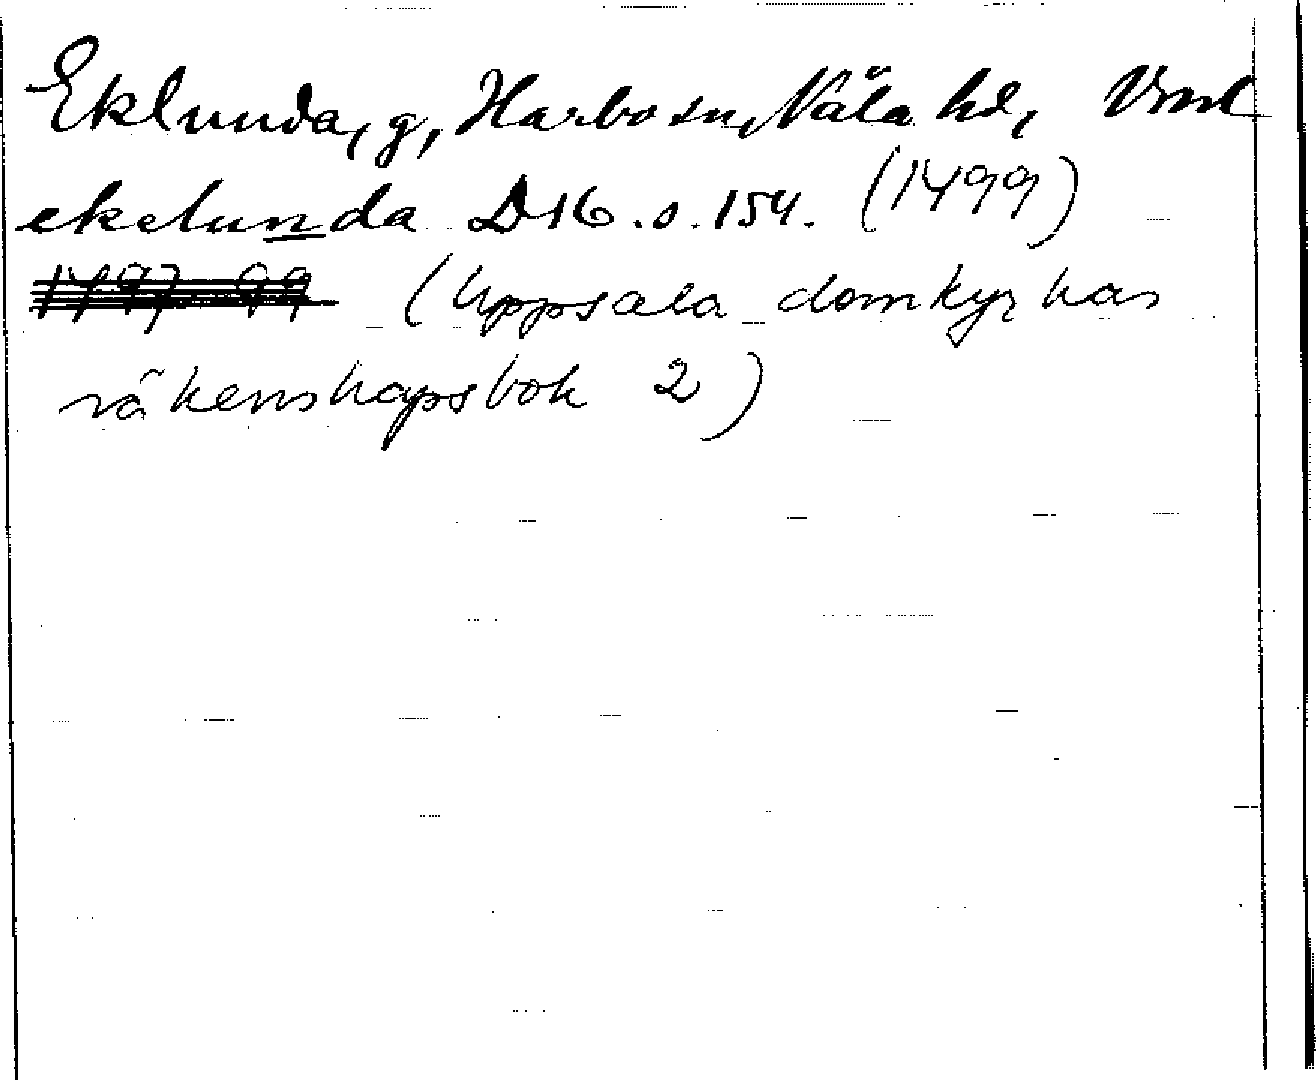 Eklunda, g, Harbo sn, Våla hd, Vml
ekelunda D16. s. 154. (1499)
1497-99 (Uppsala domkyrkas
räkenskapsbok 2)